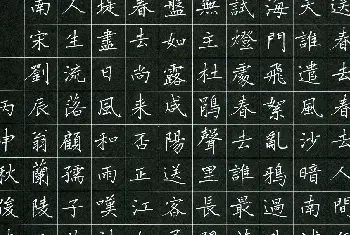 送春去春去人間
天誰遣風沙暗南
海門飛絮亂鴉過
試燈處春去誰最
無主杜鵑聲里長
盤如露咸陽送客
春去尚来否正江
堤盡日風和雨嘆
人生流落顧孺子
南宋劉辰翁蘭陵王
丙申秋後